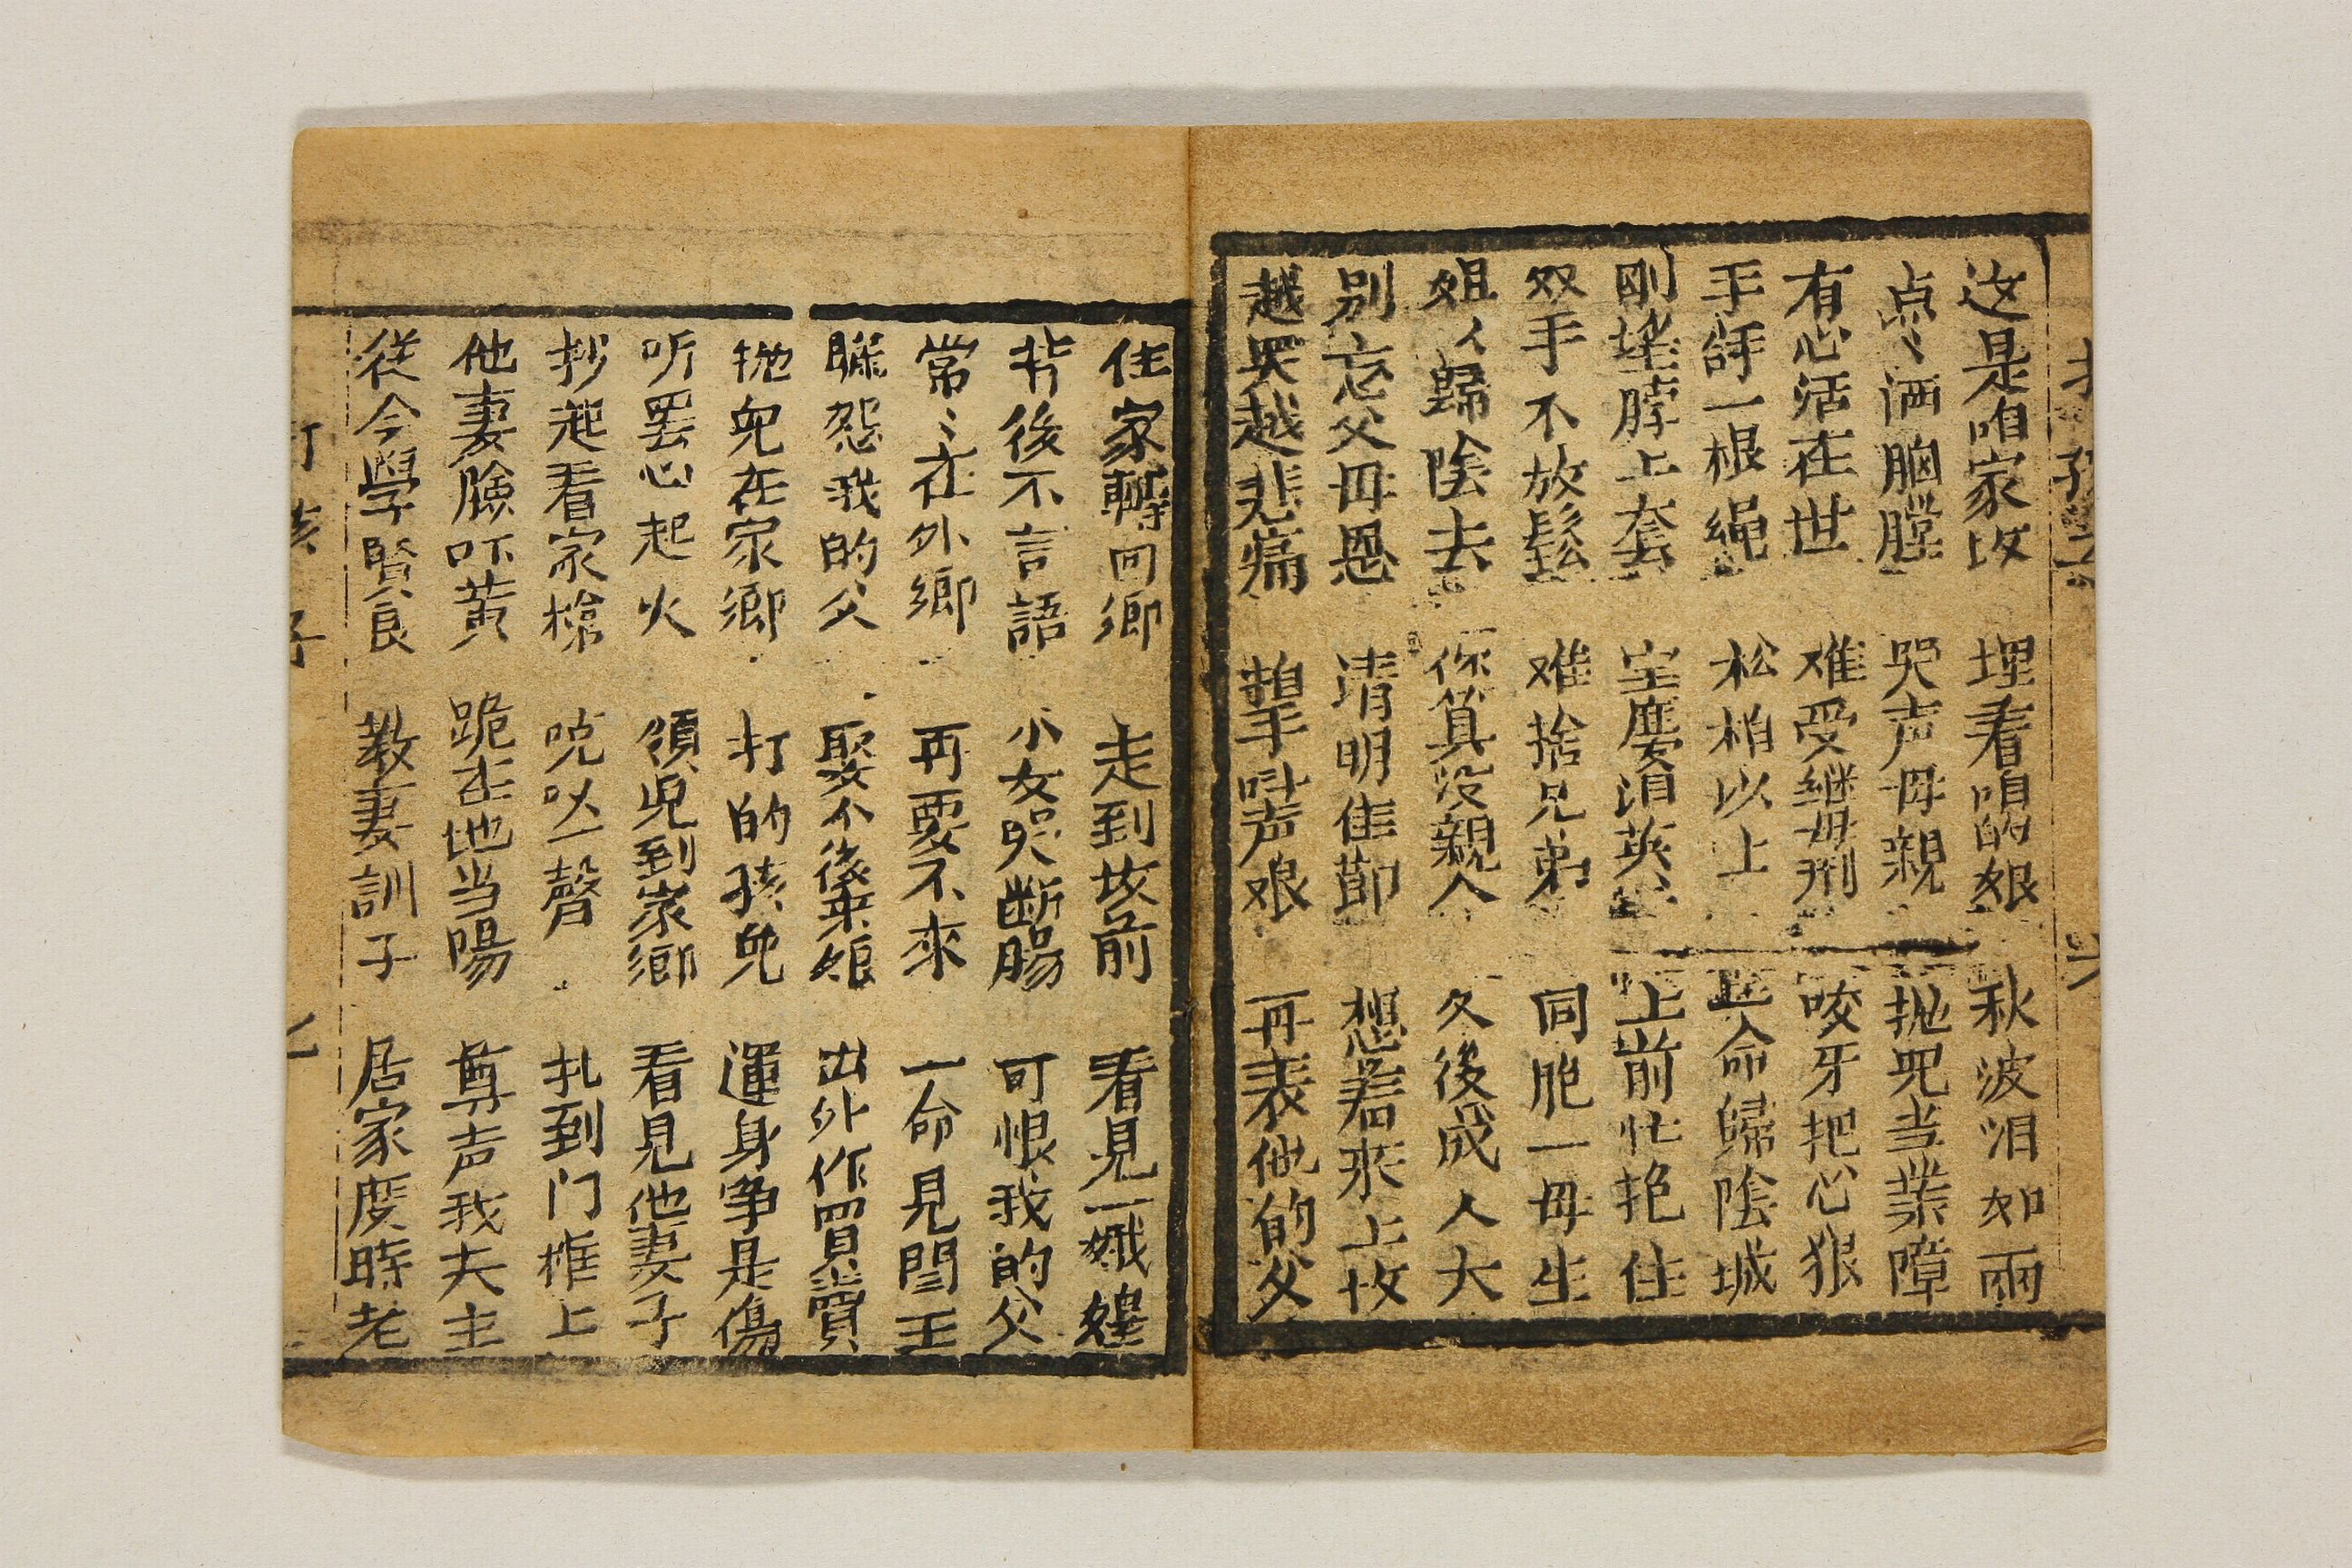 这是咱家坟 埋着咱的娘 秋波泪如雨
点〻洒胸膛 哭声母親 抛児当業障
有心活在世 难受継母刑 咬牙把心狠
手拿一根绳 松柏以上 一命歸陰城
剛往脖上套 上前忙抱住
双手不放鬆 难捨兄弟 同胞一母生
姐〻歸陰去 你算没親人 久後成人大
别忘父母恩 清明佳節 想着來上坟
越哭越悲痛 叫声娘 再表他的父
住家轉回鄉 走到坟前 看見一娥
背後不言語 小女哭断腸 可恨我的父
常〻在外鄉 再要不來 一命見閻王
怨我的父 娶个後来娘 出外作買賣
抛兒在家鄉 打的孩兒 運身争是傷
听罢心起火 領兒到家鄉 看見他妻子
抄起看家槍 吭吆一聲 扎到门框上
他妻臉吓黄 跪在地当陽 尊声我夫主
従今學賢良 教妻訓子 居家度時老
打孩子